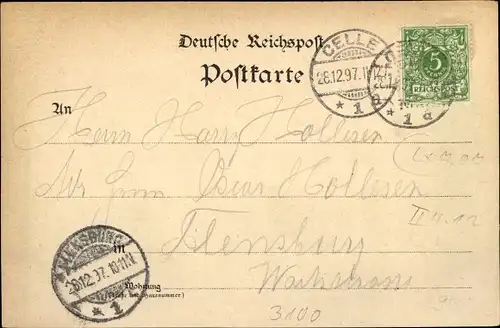 Deutsche Reichspost
Postkarte
CELLE
26.12.97.11
* 1 a
5
REICHSPOST
* 1 a
An
Herrn Harry Hollesen
Adr Herrn Oscar Hollesen
in
Flensburg
II 4.12
FLENSBURG
26.12.97.10-11N
* 1
Wohnung
(Straße und Hausnummer)
3100